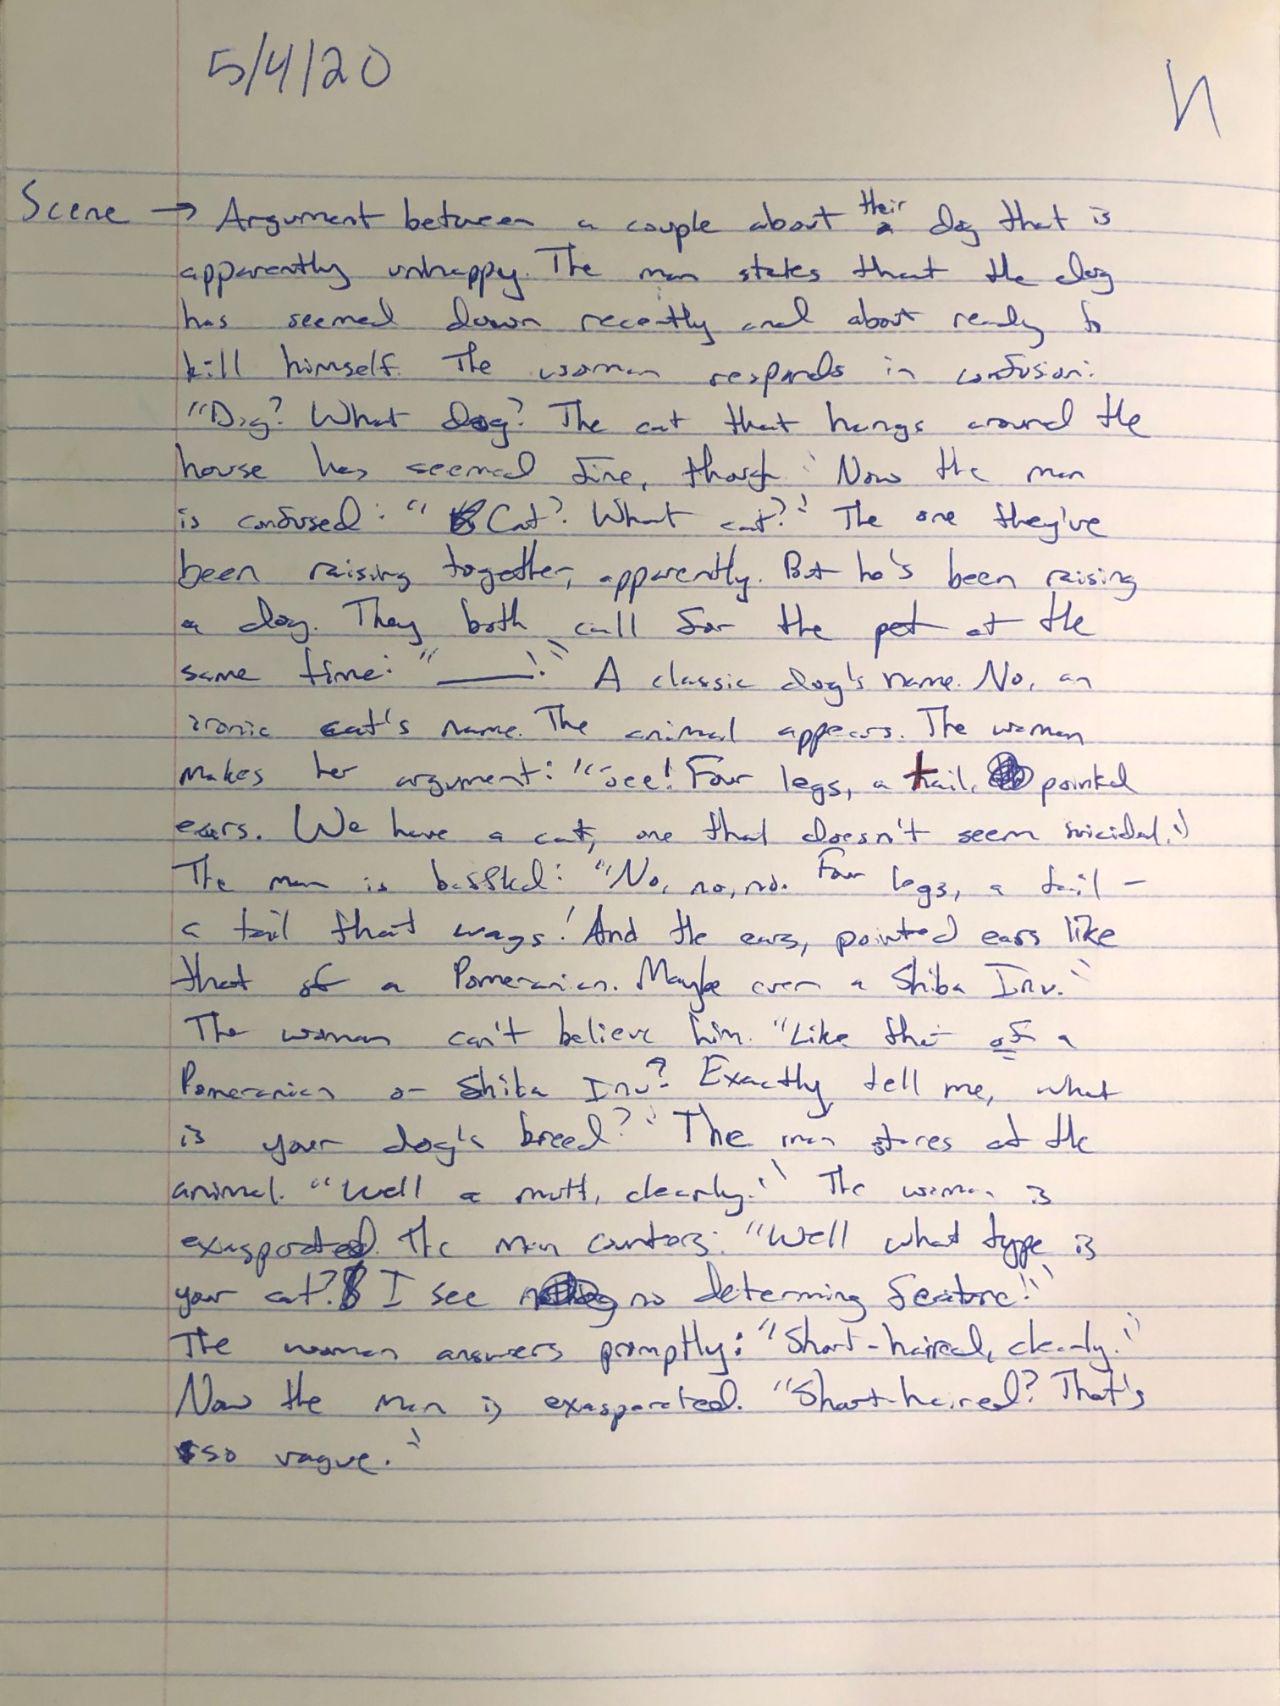 5/4/20
Scene → Argument between a couple about their dog that is
apparently unhappy. The man states that the dog
has seemed down recently and about ready to
kill himself. The woman responds in confusion:
"Dog? What dog? The cat that hangs around the
house has seemed fine, though." Now the man
is confused: "Cat? What cat?" The one they've
been raising together, apparently. But he's been raising
a dog. They both call for the pet at the
same time: "______!" A classic dog's name. No, an
ironic cat's name. The animal appears. The woman
makes her argument: "See! Four legs, a tail, pointed
ears. We have a cat, one that doesn't seem suicidal."
The man is baffled: "No, no, no. Four legs, a tail –
a tail that wags! And the ears, pointed ears like
that of a Pomeranian. Maybe even a Shiba Inu."
The woman can't believe him. "Like that of a
Pomeranian or Shiba Inu? Exactly tell me, what
is your dog's breed?" The man stares at the
animal. "Well a mutt, clearly." The woman is
exasperated. The man counters: "Well what type is
your cat? I see no determing feature!"
The woman answers promptly: "Short-haired, clearly."
Now the man is exasperated. "Short-haired? That's
so vague."